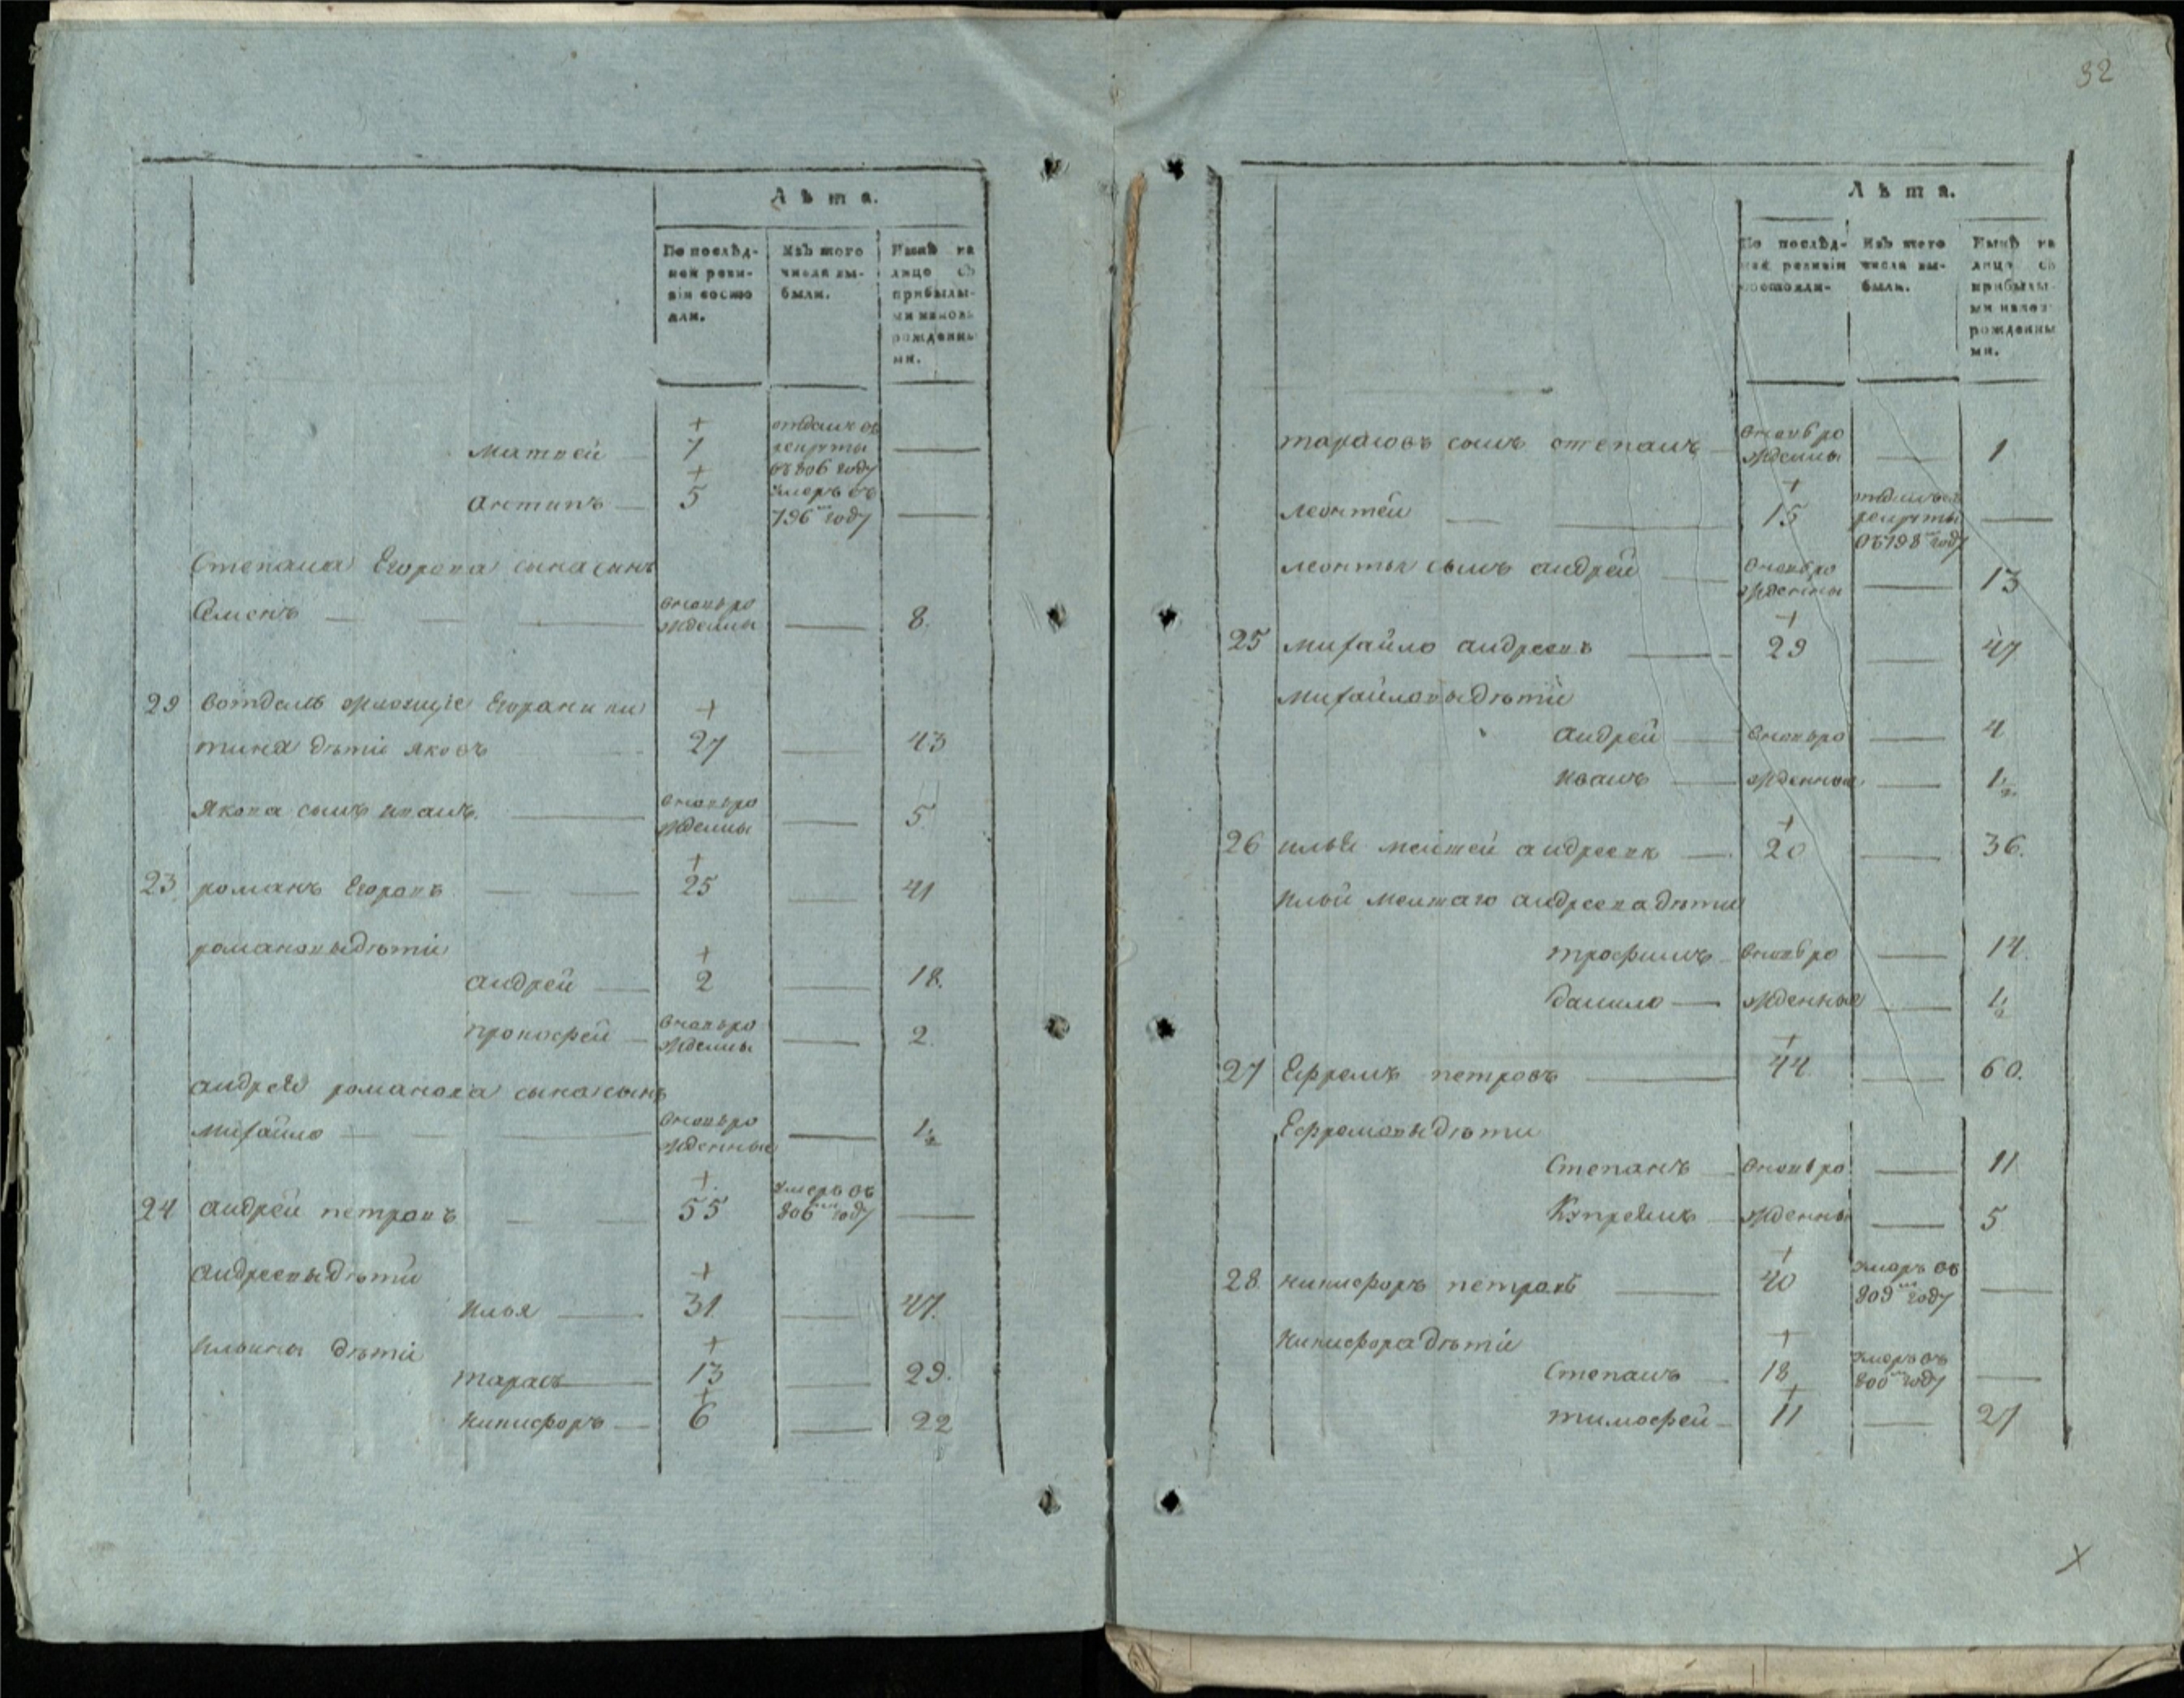 Лѣта.
По послѣд-
ней реви-
зіи состо
яли.
Изъ того
числа вы-
были.
Нынѣ на
лицо съ
прибылы-
ми и новь
рожденны
ми.
матвей 7 отданъ въ
рекруты
въ 806 году
антипъ 5 умеръ въ
796 году
Степана Егорова сына сынъ
Семенъ вновь ро
жденны 8.
22 вотделъ живущіе Егора ники
тина дѣти яковъ 27 43
якова сынъ иванъ вновь ро
жденны 5.
23 романъ Егоровъ 25 41
романовы дѣти
андрей 2 18.
прокофей вновь ро
жденны 2.
андрея романова сына сынъ
михайло вновь ро
жденные 1/2
24 андрей петровъ 55 умеръ въ
806 году
андреевы дѣти
илья 31. 47.
ильины дѣти
тарасъ 13 29.
никифоръ 6 22
32
Лѣта.
По послѣд-
ней ревизіи
состояли-
Изъ того
числа вы-
были.
Нынѣ на
лицо съ
прибылы-
ми и новь
рожденны
ми.
тарасовъ сынъ степанъ вновь ро
жденны 1
леонтей 15 отданъ въ
рекруты
въ 798 году
леонтья сынъ андрей вновь ро
жденны 13
25 михайло андреевъ 29 47
михайловы дѣти
андрей вновь ро 4
иванъ жденные 1/2
26 илья меншей андреевъ 20 36.
ильи меншаго андреева дѣти
трофимъ вновь ро 14.
данило жденные 1/2
27 Ефремъ петровъ 44 60.
Ефремовы дѣти
Степанъ вновь ро 11
Купреянъ жденны 5
28. никифоръ петровъ 40 умеръ въ
809 году
никифора дѣти
степанъ 18 умеръ въ
800 году
тимофей 11 27